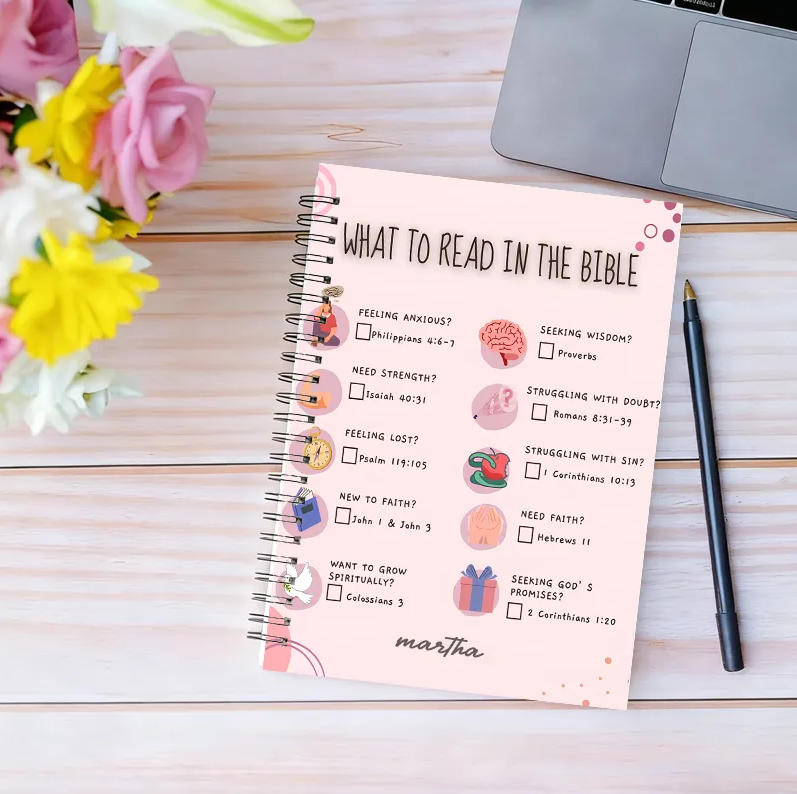 WHAT TO READ IN THE BIBLE
FEELING ANXIOUS?
Philippians 4:6-7
NEED STRENGTH?
Isaiah 40:31
FEELING LOST?
Psalm 119:105
NEW TO FAITH?
John 1 & John 3
WANT TO GROW
SPIRITUALLY?
Colossians 3
SEEKING WISDOM?
Proverbs
STRUGGLING WITH DOUBT?
Romans 8:31-39
STRUGGLING WITH SIN?
1 Corinthians 10:13
NEED FAITH?
Hebrews 11
SEEKING GOD'S
PROMISES?
2 Corinthians 1:20
martha